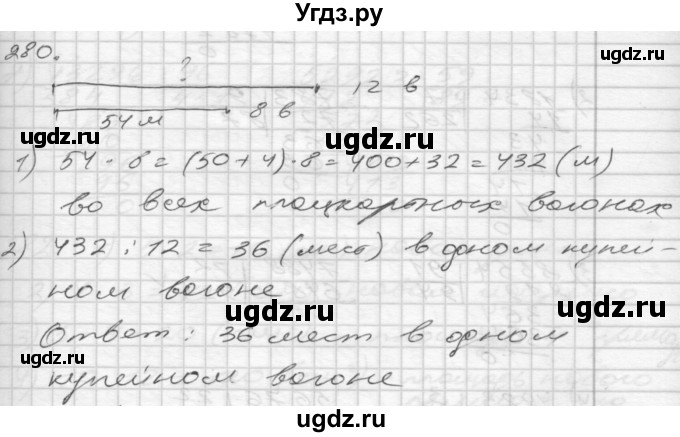 Угдз.ру
280.
?
12 в
54 м
8 в
ugdz.ru
ugdz.ru
1) 54 · 8 = (50 + 4) · 8 = 400 + 32 = 432 (м)
во всех плацкартных вагонах
ugdz.ru
ugdz.ru
2) 432 : 12 = 36 (мест) в одном купей-
ном вагоне
ugdz.ru
Ответ: 36 мест в одном
ugdz.ru
купейном вагоне
ugdz.ru
ugdz.ru